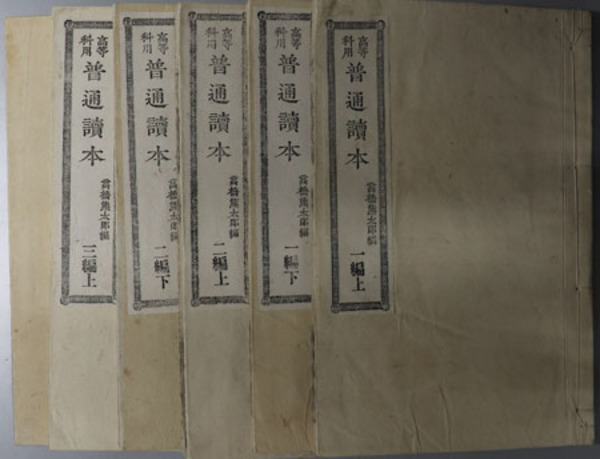 高等科用
普通讀本
高橋熊太郎編
一編上
高等科用
普通讀本
高橋熊太郎編
一編下
高等科用
普通讀本
高橋熊太郎編
二編上
高等科用
普通讀本
高橋熊太郎編
二編下
高等科用
普通讀本
高橋熊太郎編
三編上